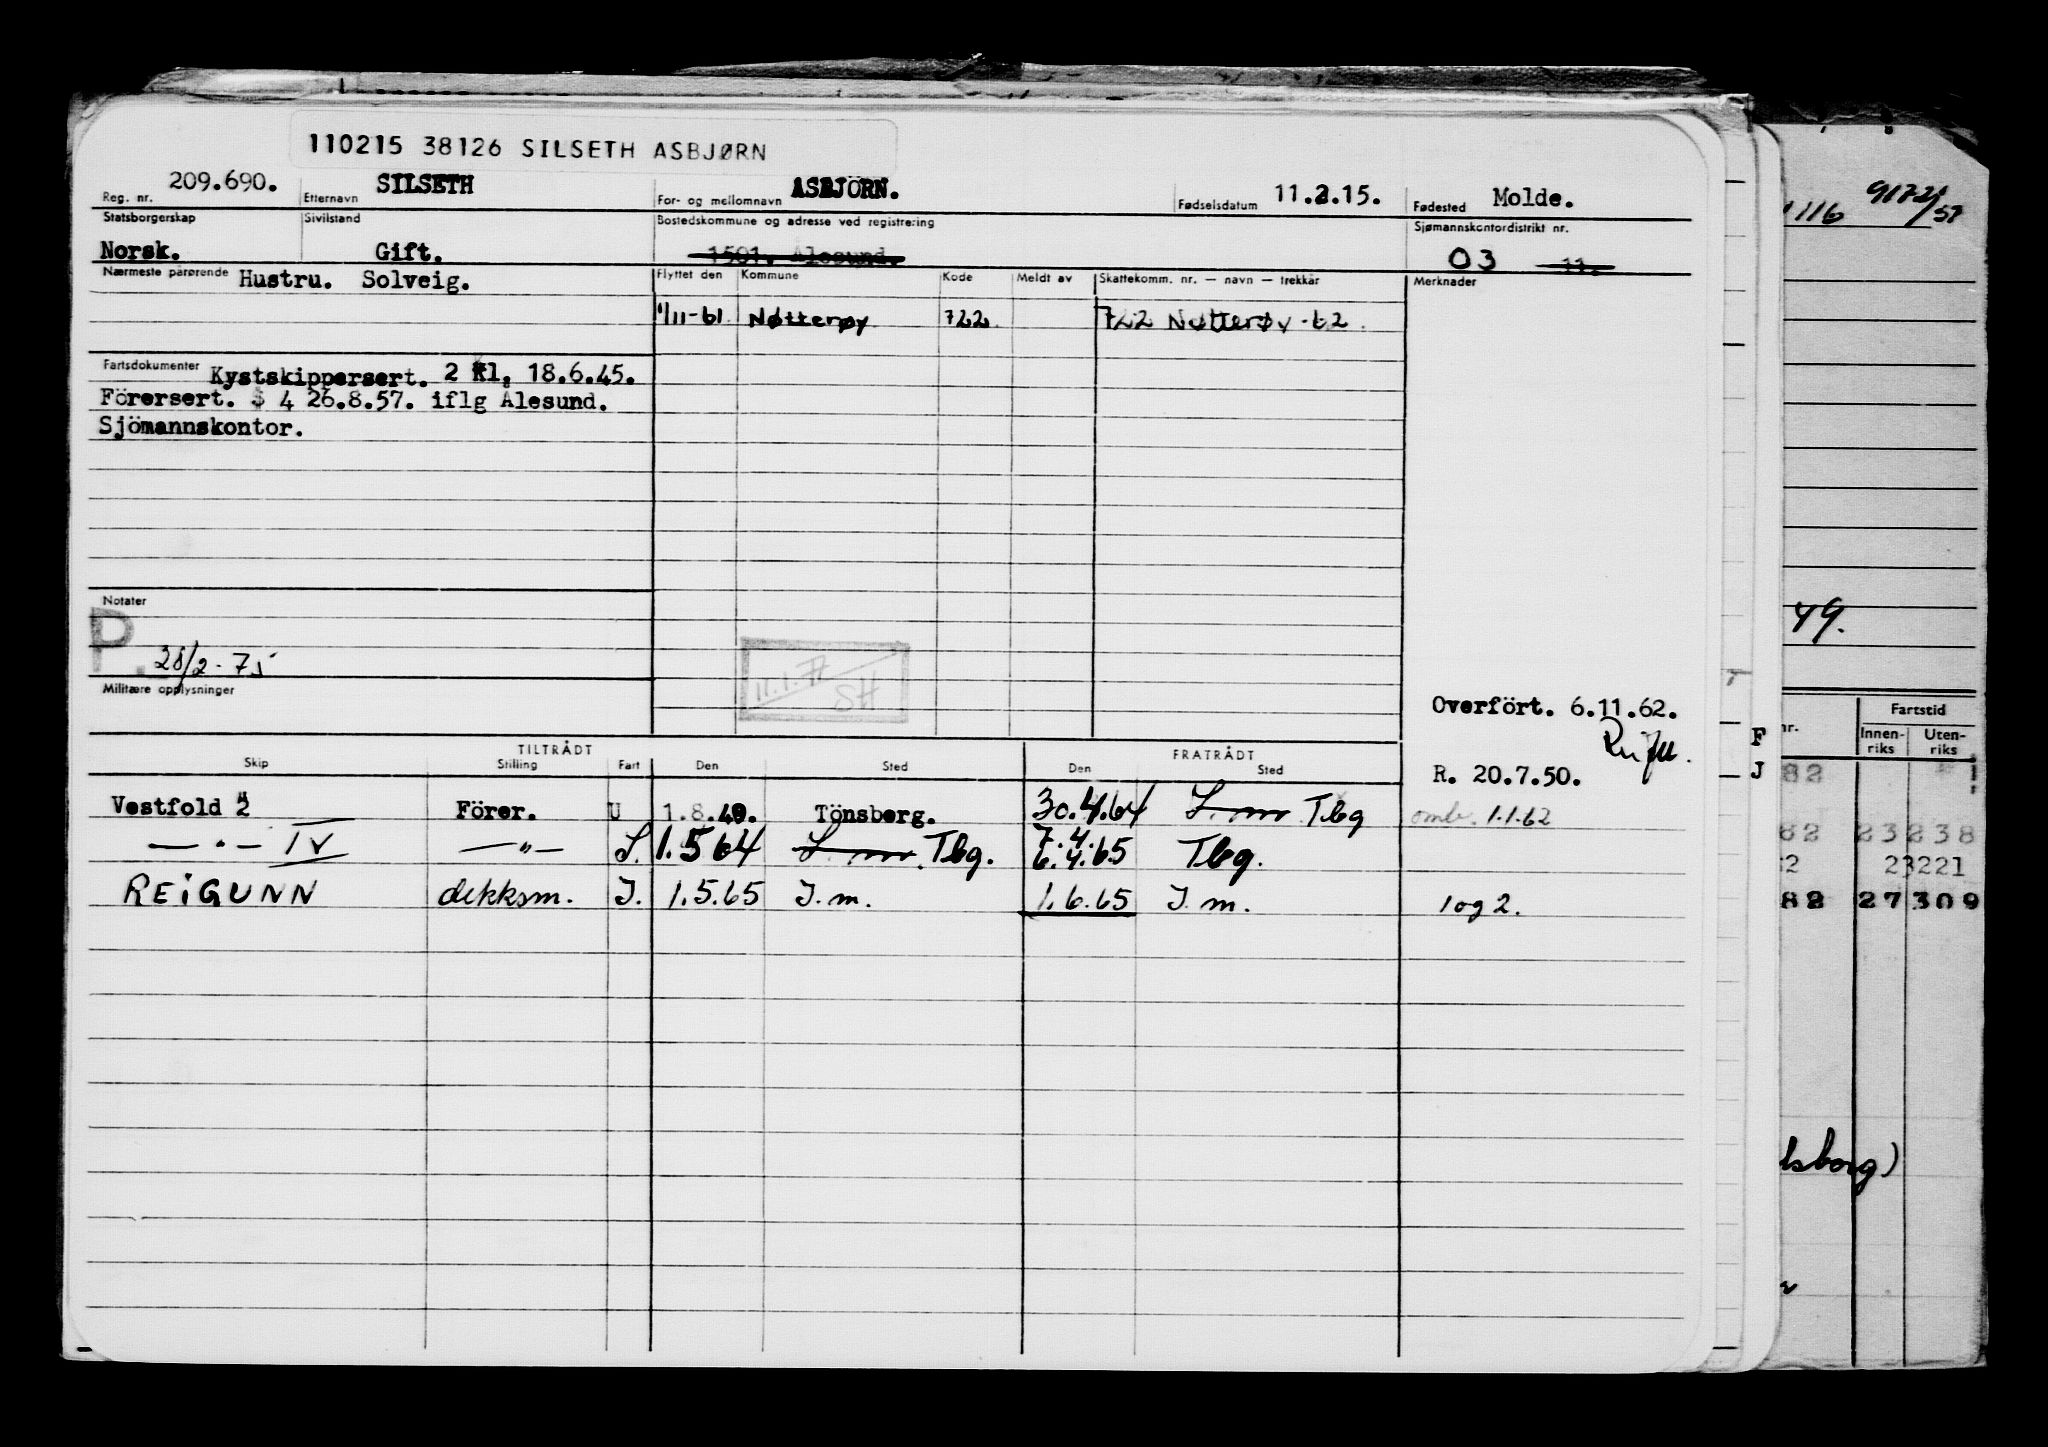 110215 38126 SILSETH ASBJØRN
Reg. nr. 209.690. Etternavn SILSETH For- og mellomnavn ASBJÖRN. Fødselsdatum 11.2.15. Fødested Molde.
Statsborgerskap Sivilstand Bostedskommune og adresse ved registrering Sjømannskontordistrikt nr.
Norsk. Gift. 1501. Alesund. 03 11.
Nærmeste pårørende Hustru. Solveig. Flyttet den Kommune Kode Meldt av Skattekomm. nr. — navn — trekkår Merknader
1/11-61 Nøtterøy 722 722 Nøtterøy-62
Fartsdokumenter Kystskippersert. 2 kl, 18.6.45.
Förersert. § 4 26.8.57. iflg Alesund.
Sjömannskontor.
Notater
P. 28/2-75
Militære opplysninger
11.1.77
SH
Overfört. 6.11.62.
R. 20.7.50.
TILTRÅDT FRATRÅDT
Skip Stilling Fart Den Sted Den Sted
Vestfold 2 Förer. U 1.8.49. Tönsberg. 30.4.64 Tbg omb. 1.1.62
— " — IV — " — 1.5 64 Tbg. 7.4. 6.4.65 Tbg.
REIGUNN dekksm. J. 1.5.65 J.m. 1.6.65 J.m. 1 og 2.
F
J
116 9172/57
49.
nr. Fartstid
Innen-riks Uten-riks
82
82 23 238
2 23221
82 27 309
lsborg)